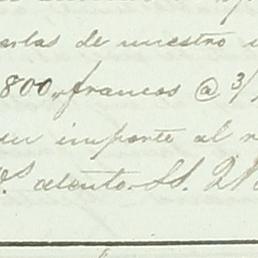 cartas de nuestro
800, francos @ 3/
su importe al
atento. SS.